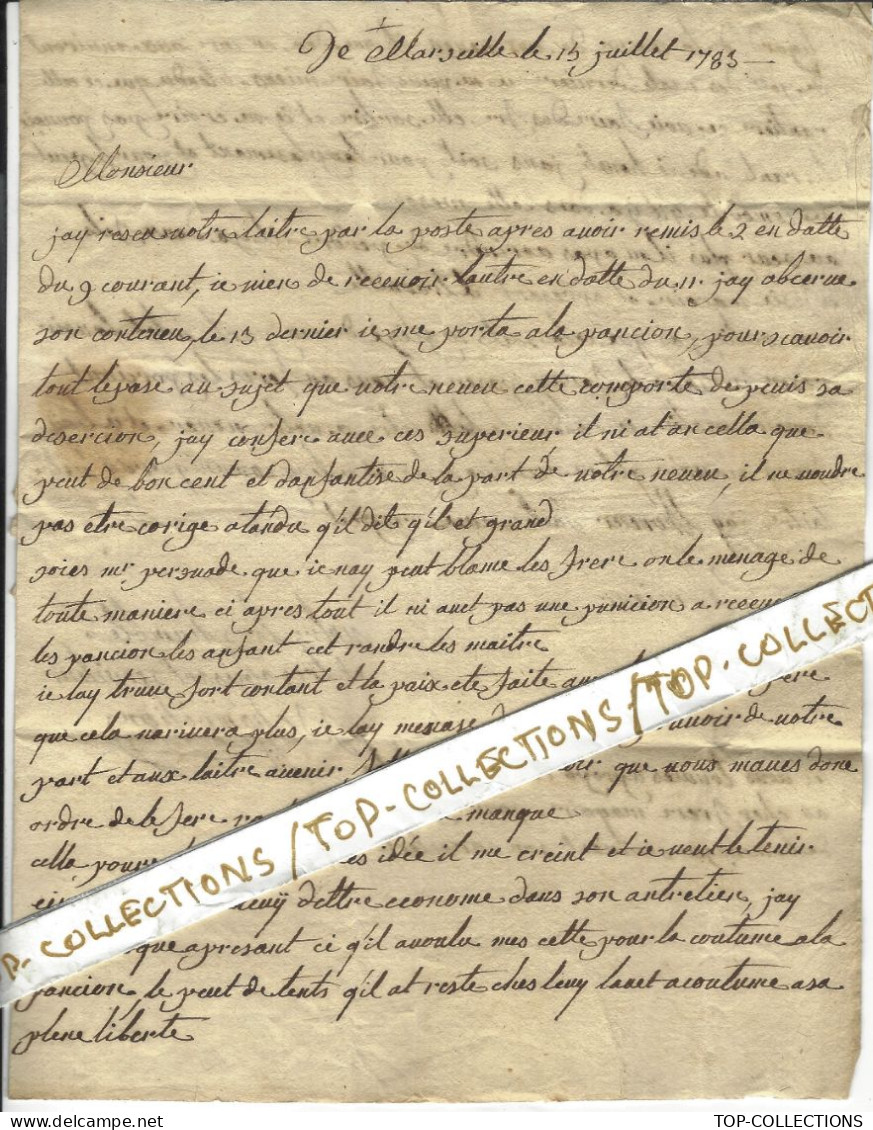 De Marseille le 15 juillet 1783
Monsieur
jay reseu votre laitre par la poste apres avoir remis le 2 en datte
du 9 courant, je vien de recevoir lautre en datte du 11. jay obcerve
son conteneu, le 13 dernier je me porta a la pancion, pour scavoir
tout le pase au sujet que votre neveu cette comporte depuis sa
desercion, jay confere avec ces superieur il ni at an cella que
peut de bon cent et danfantise de la part de votre neveu, il ne voudre
pas etre corige atandu q'il dit q'il et grand
soies mr. persuade que je nay peut blame les frere on le menage de
toute maniere ci apres tout il ni avet pas une punicion a recev
les pancion les anfant cet randre les maitre
je lay truve fort contant et la paix ete faite av
que cela narivera plus, je lay menase avoir de votre
part et aux laitre avenir que vous maves done
ordre de le fere manque
cella pour idée il me creint et je veut le tenir
dettre econome dans son antretien, jay
que apresant ci q'il a voulu mes cette pour la coutume a la
pancion, le peut de tents q'il at reste ches luy lavet acoutume a sa
plene liberte
P-COLLECTIONS / TOP-COLLECTIONS / TOP-COLLECT
TOP-COLLECTIONS